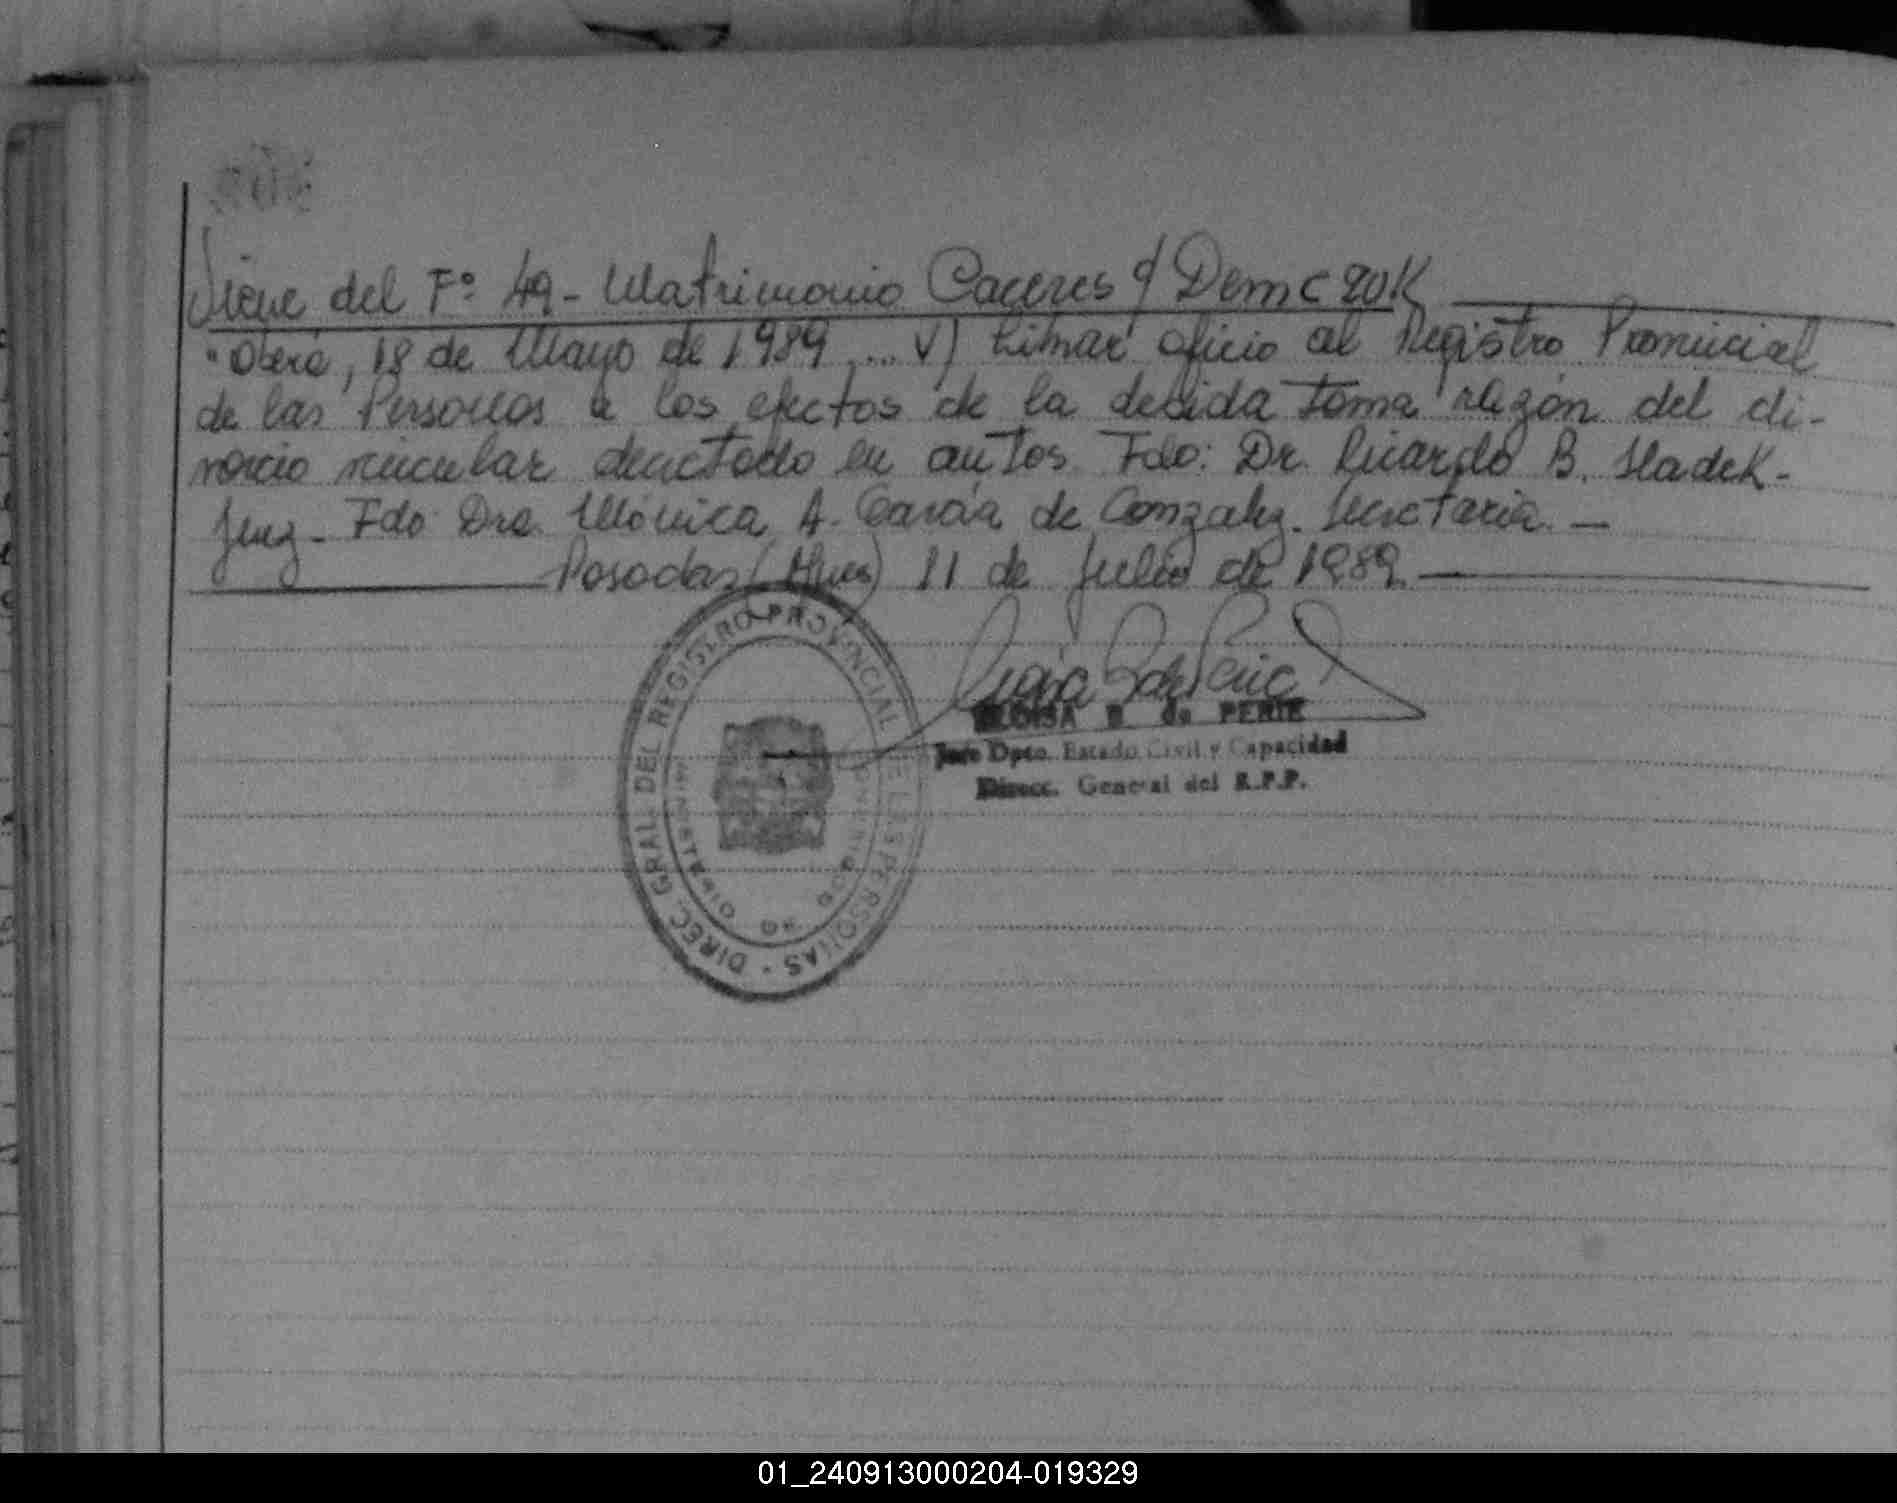 Viene del Fº 49 - Matrimonio Caceres c/ Demczuk
"Oberá, 18 de Mayo de 1989 ... V) Librar oficio al Registro Provincial
de las Personas a los efectos de la debida toma razón del di-
vorcio vincular decretado en autos. Fdo: Dr. Ricardo B. Sladek -
Juez - Fdo Dra. Mónica A. García de Gonzalez. Secretaria. -
Posadas (Mnes) 11 de Julio de 1989.
DIREC. GRAL. DEL REGISTRO PROVINCIAL DE LAS PERSONAS
ELOISA B. de PERIE
Jefe Dpto. Estado Civil y Capacidad
Direcc. General del R.P.P.
01_240913000204-019329